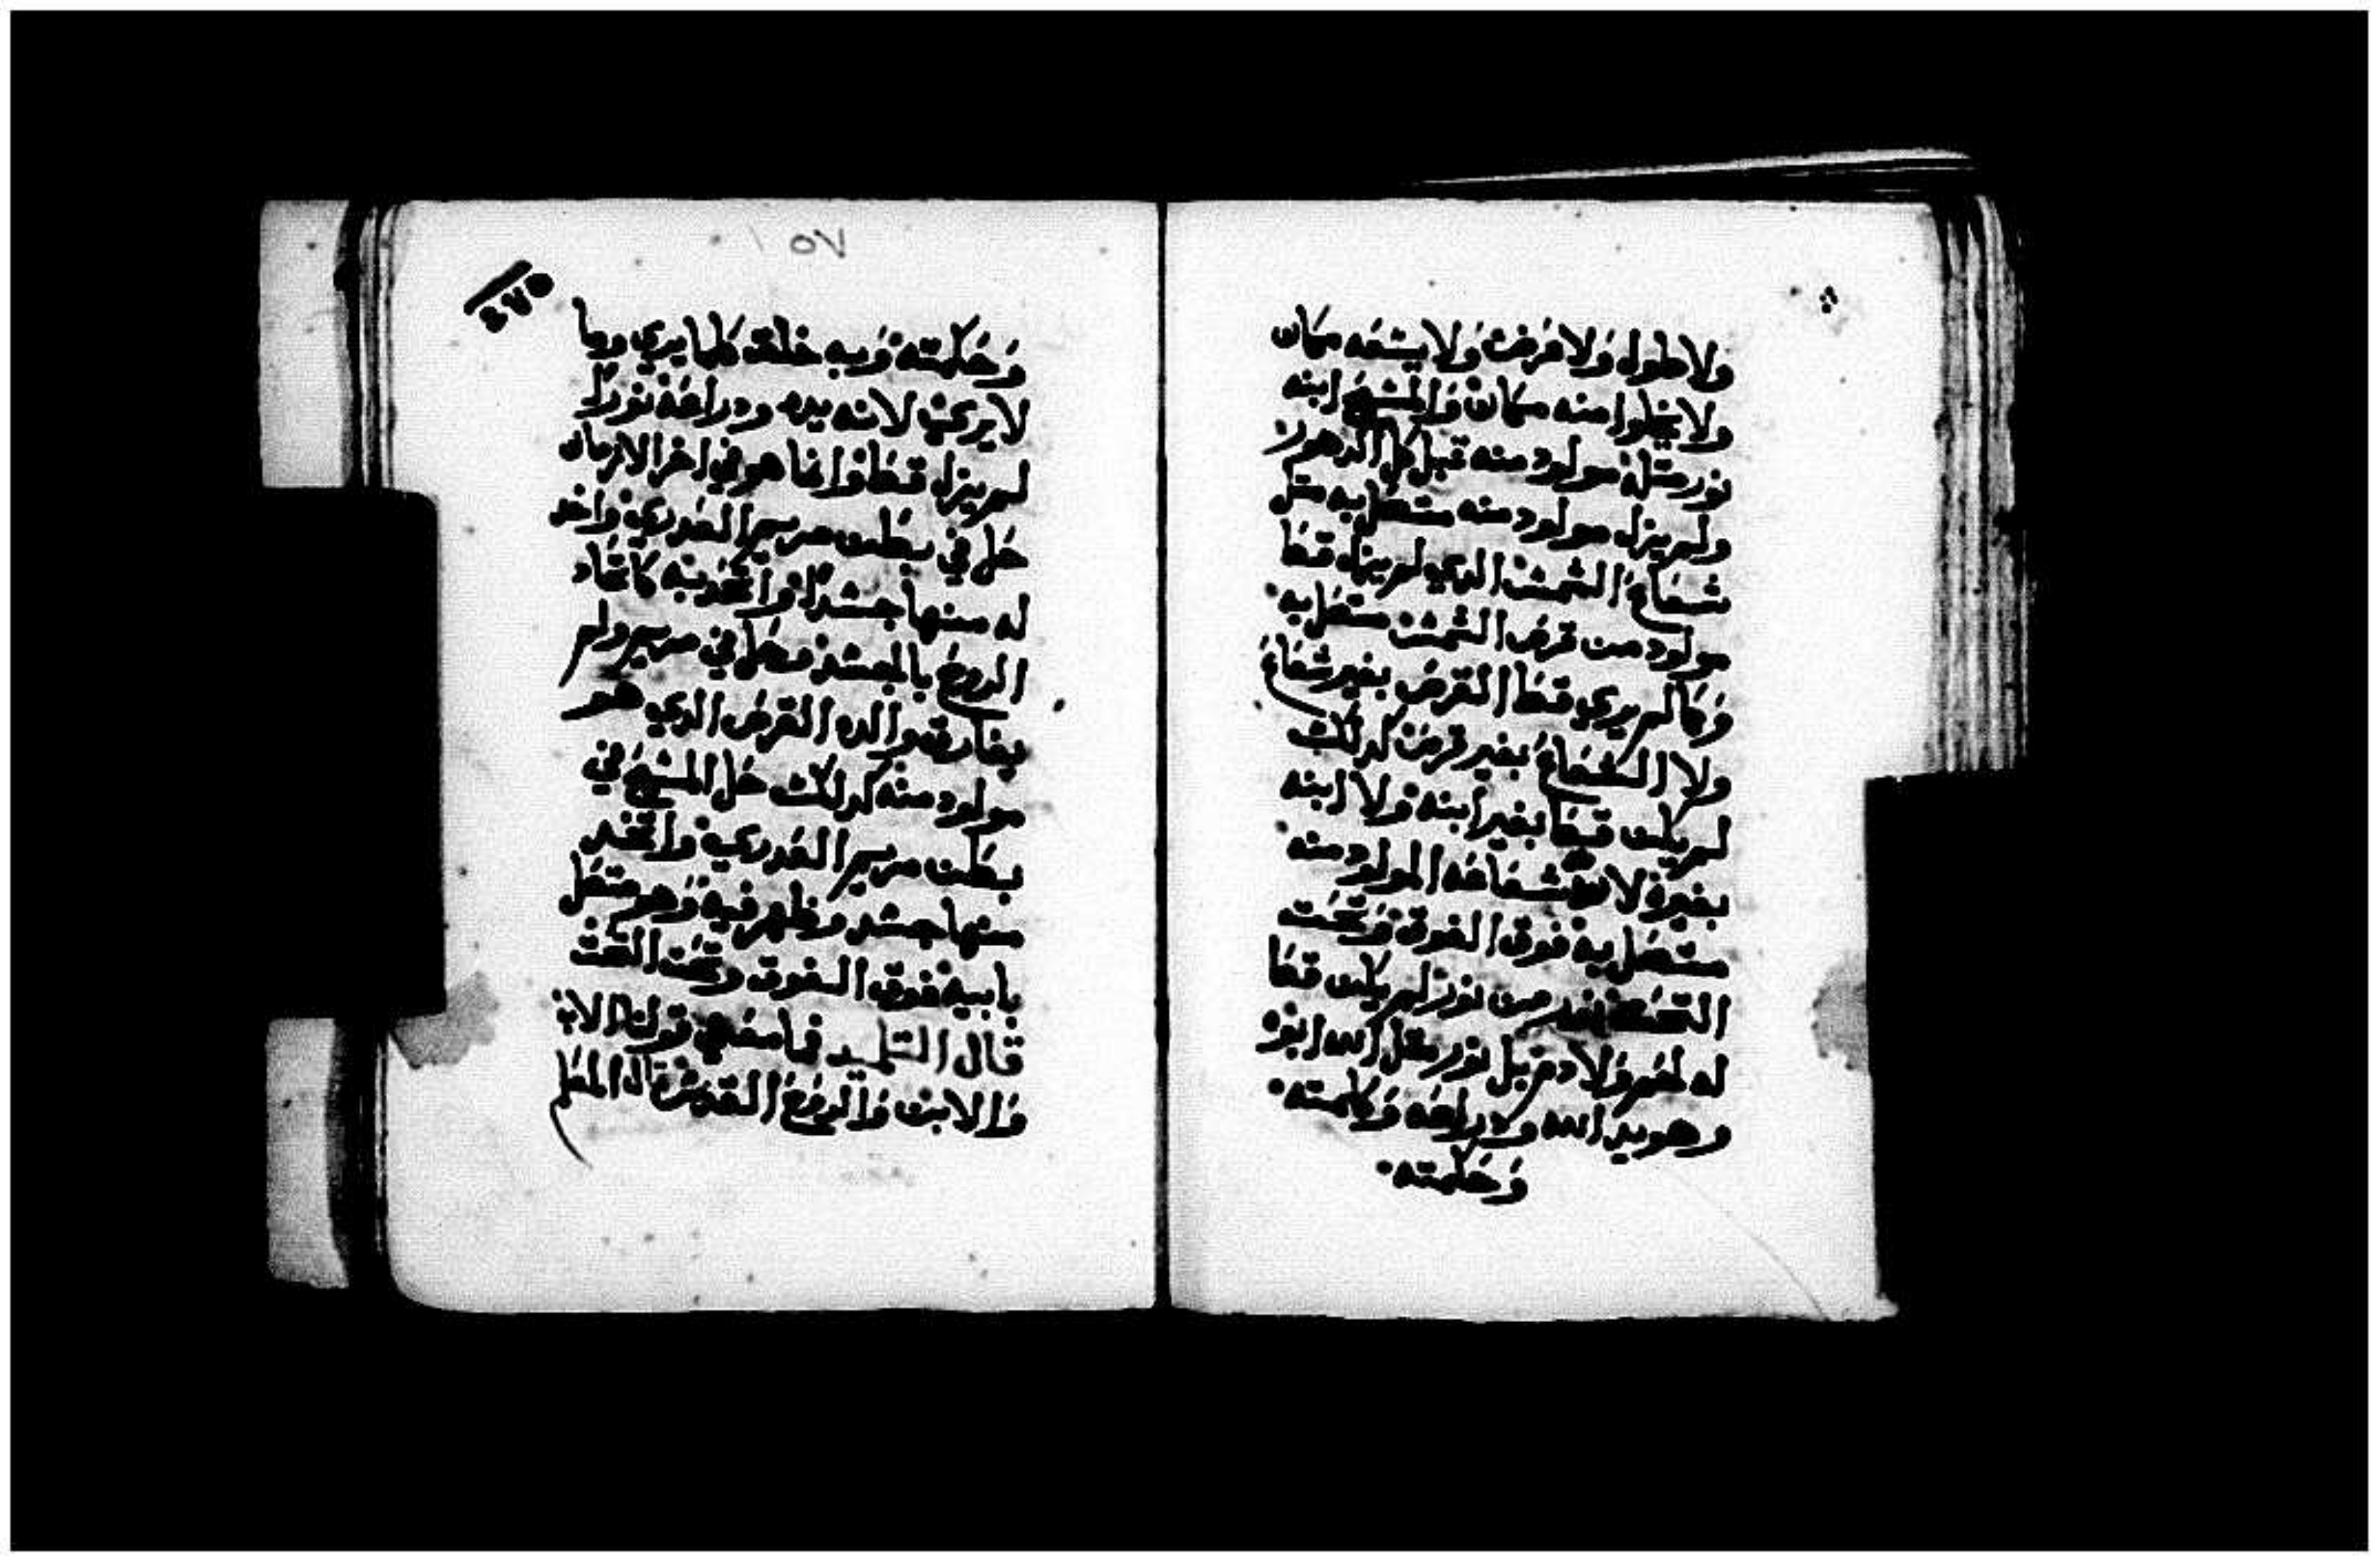 ولا طول ولا عرض ولا يسعه مكان
ولا يخلوا منه مكان والمسيح ابنه
نور مثله مولود منه قبل كل الدهور
ولم يزل مولود منه متصل به مثل
شعاع الشمس الدي لم يزل قط
مولود من قرص الشمس متصل به
وكما لم يري قط القرص بغير شعاع
ولا الشعاع بغير قرص كدلك
لم يكن قط بغير ابنه ولا ابنه
بغيره لان شعاعه المولود منه
متصل به فوق الفوق وتحت
التحت نور من نور لم يكن قط
له لحم ولا دم بل نور مثل الله ابوه
وهو يد الله ودراعه وكلمته
وحكمته
٥٧
وحكمته وبه خلق كلما يري وما
لا يري لانه يده ودراعه نورا
لم يزل قط وانما هو في اخر الازمان
حل في بطن مريم العدري واخد
له منها جسدا واتحد به كاتحاد
الروح بالجسد وحل في مريم ولم
يفارق والده القرص الدي هو
مولود منه كدلك حل المسيح في
بطن مريم العدري واتخد
منها جسد وظهر فيه وهو متصل
بابيه فوق الفوق وتحت التحت
قال التلميد فما معني قولك الاب
والابن والروح القدس قال المعلم